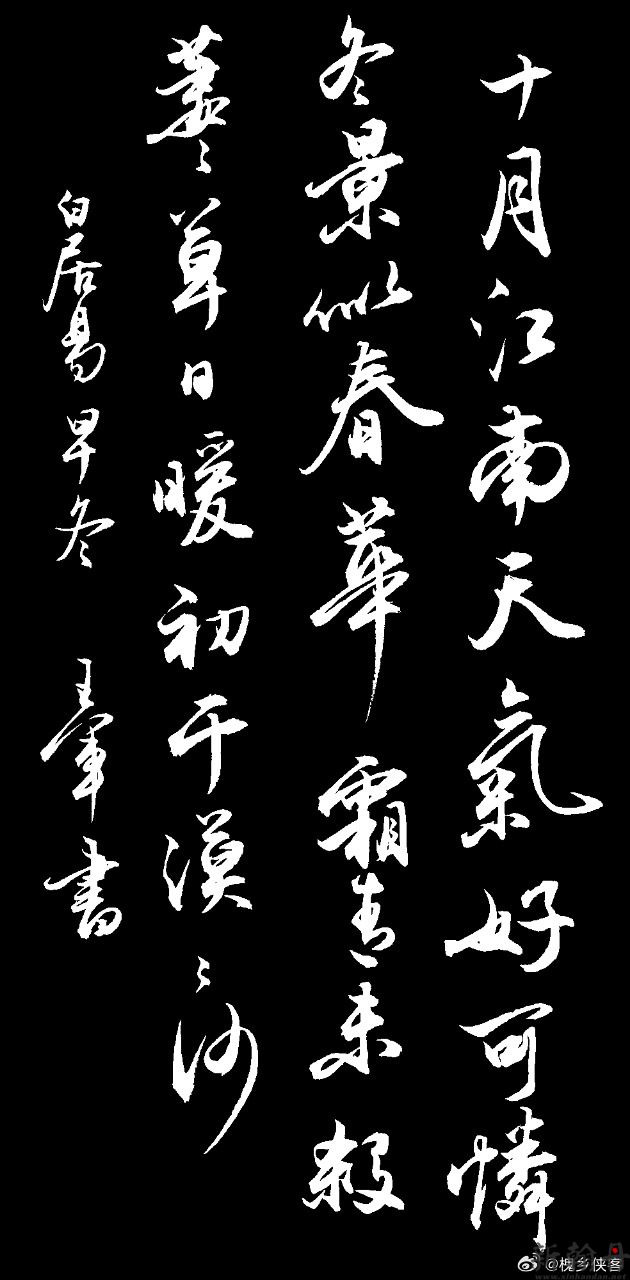 十月江南天氣好可憐
冬景似春華霜青未殺
萋〻草日暖初干漠〻沙
白居易早冬 王軍書
@槐乡侠客